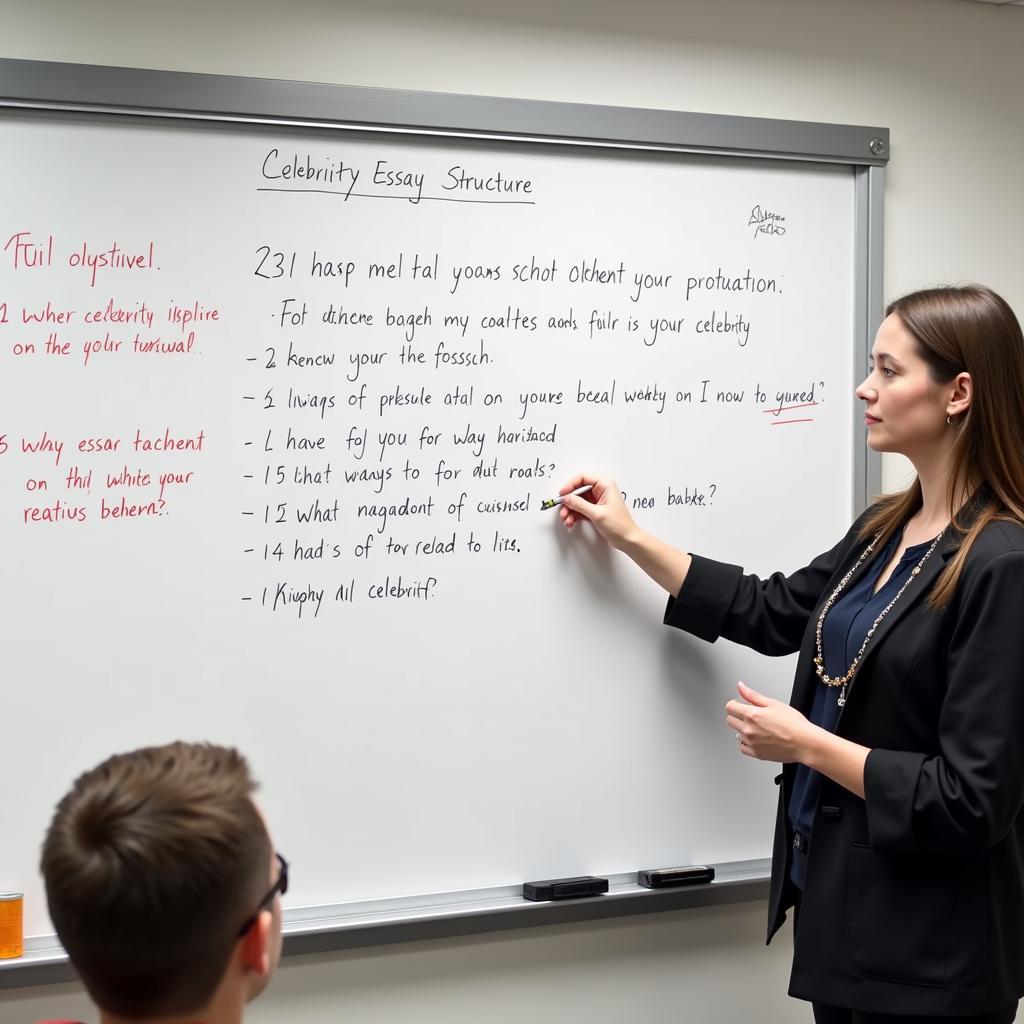 Celebriity Essay Structure
Tuil olystiivel.
1 wher celebrity iisplire
on the yolir turiwal..
6 why essar tachent
on thil white your
reatius behern?.
231 hasp mel tal yoans schot olchent your protuation:
· Fot dihcne bageh my coaltes aods foilr is your celebrity
- 2 kencw your the fosssch.
- 5 liwaps of preksule atal on youre beeal wekty on I now to yured?
- L have foj you for way haritacd
- 15 that wangs to for dut roats?
- 12 what nagadont of cuisnsel nen babke?
- 14 had's of tov relad to lits.
- 1 Kiuphy All celebritf?